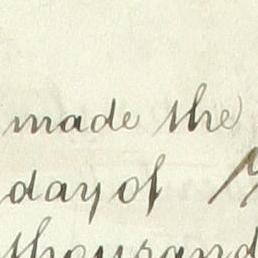 made the
day of
thousand